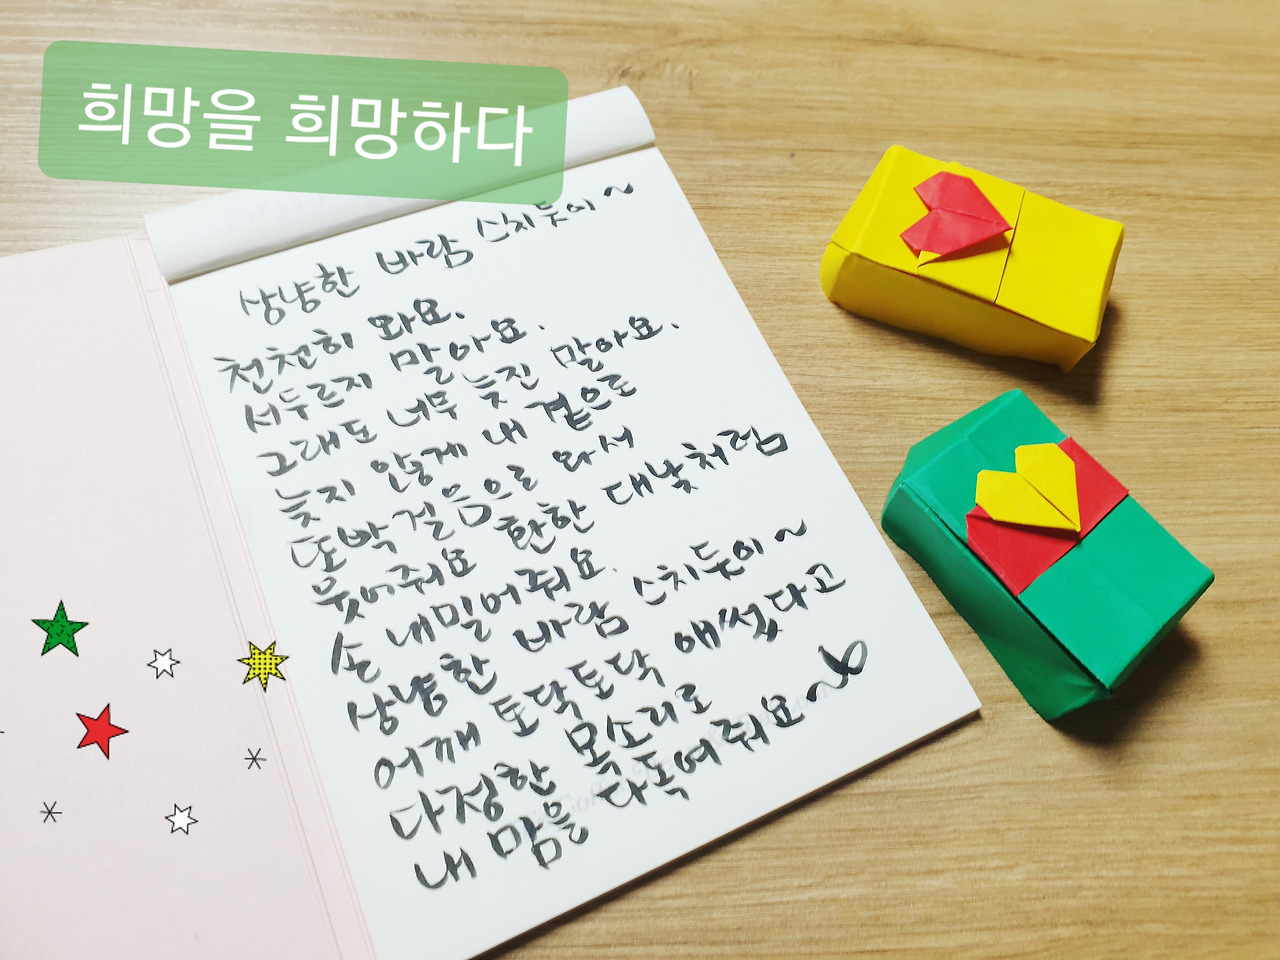 희망을 희망하다
상냥한 바람 스치듯이~
천천히 와요.
서두르지 말아요.
그래도 너무 늦진 말아요.
늦지 않게 내 곁으로
또박 걸음으로 와서
웃어줘요 환한 대낮처럼
손 내밀어 줘요.
상냥한 바람 스치듯이~
어깨 토닥토닥 애썼다고
다정한 목소리로
내 맘을 다독여줘요~